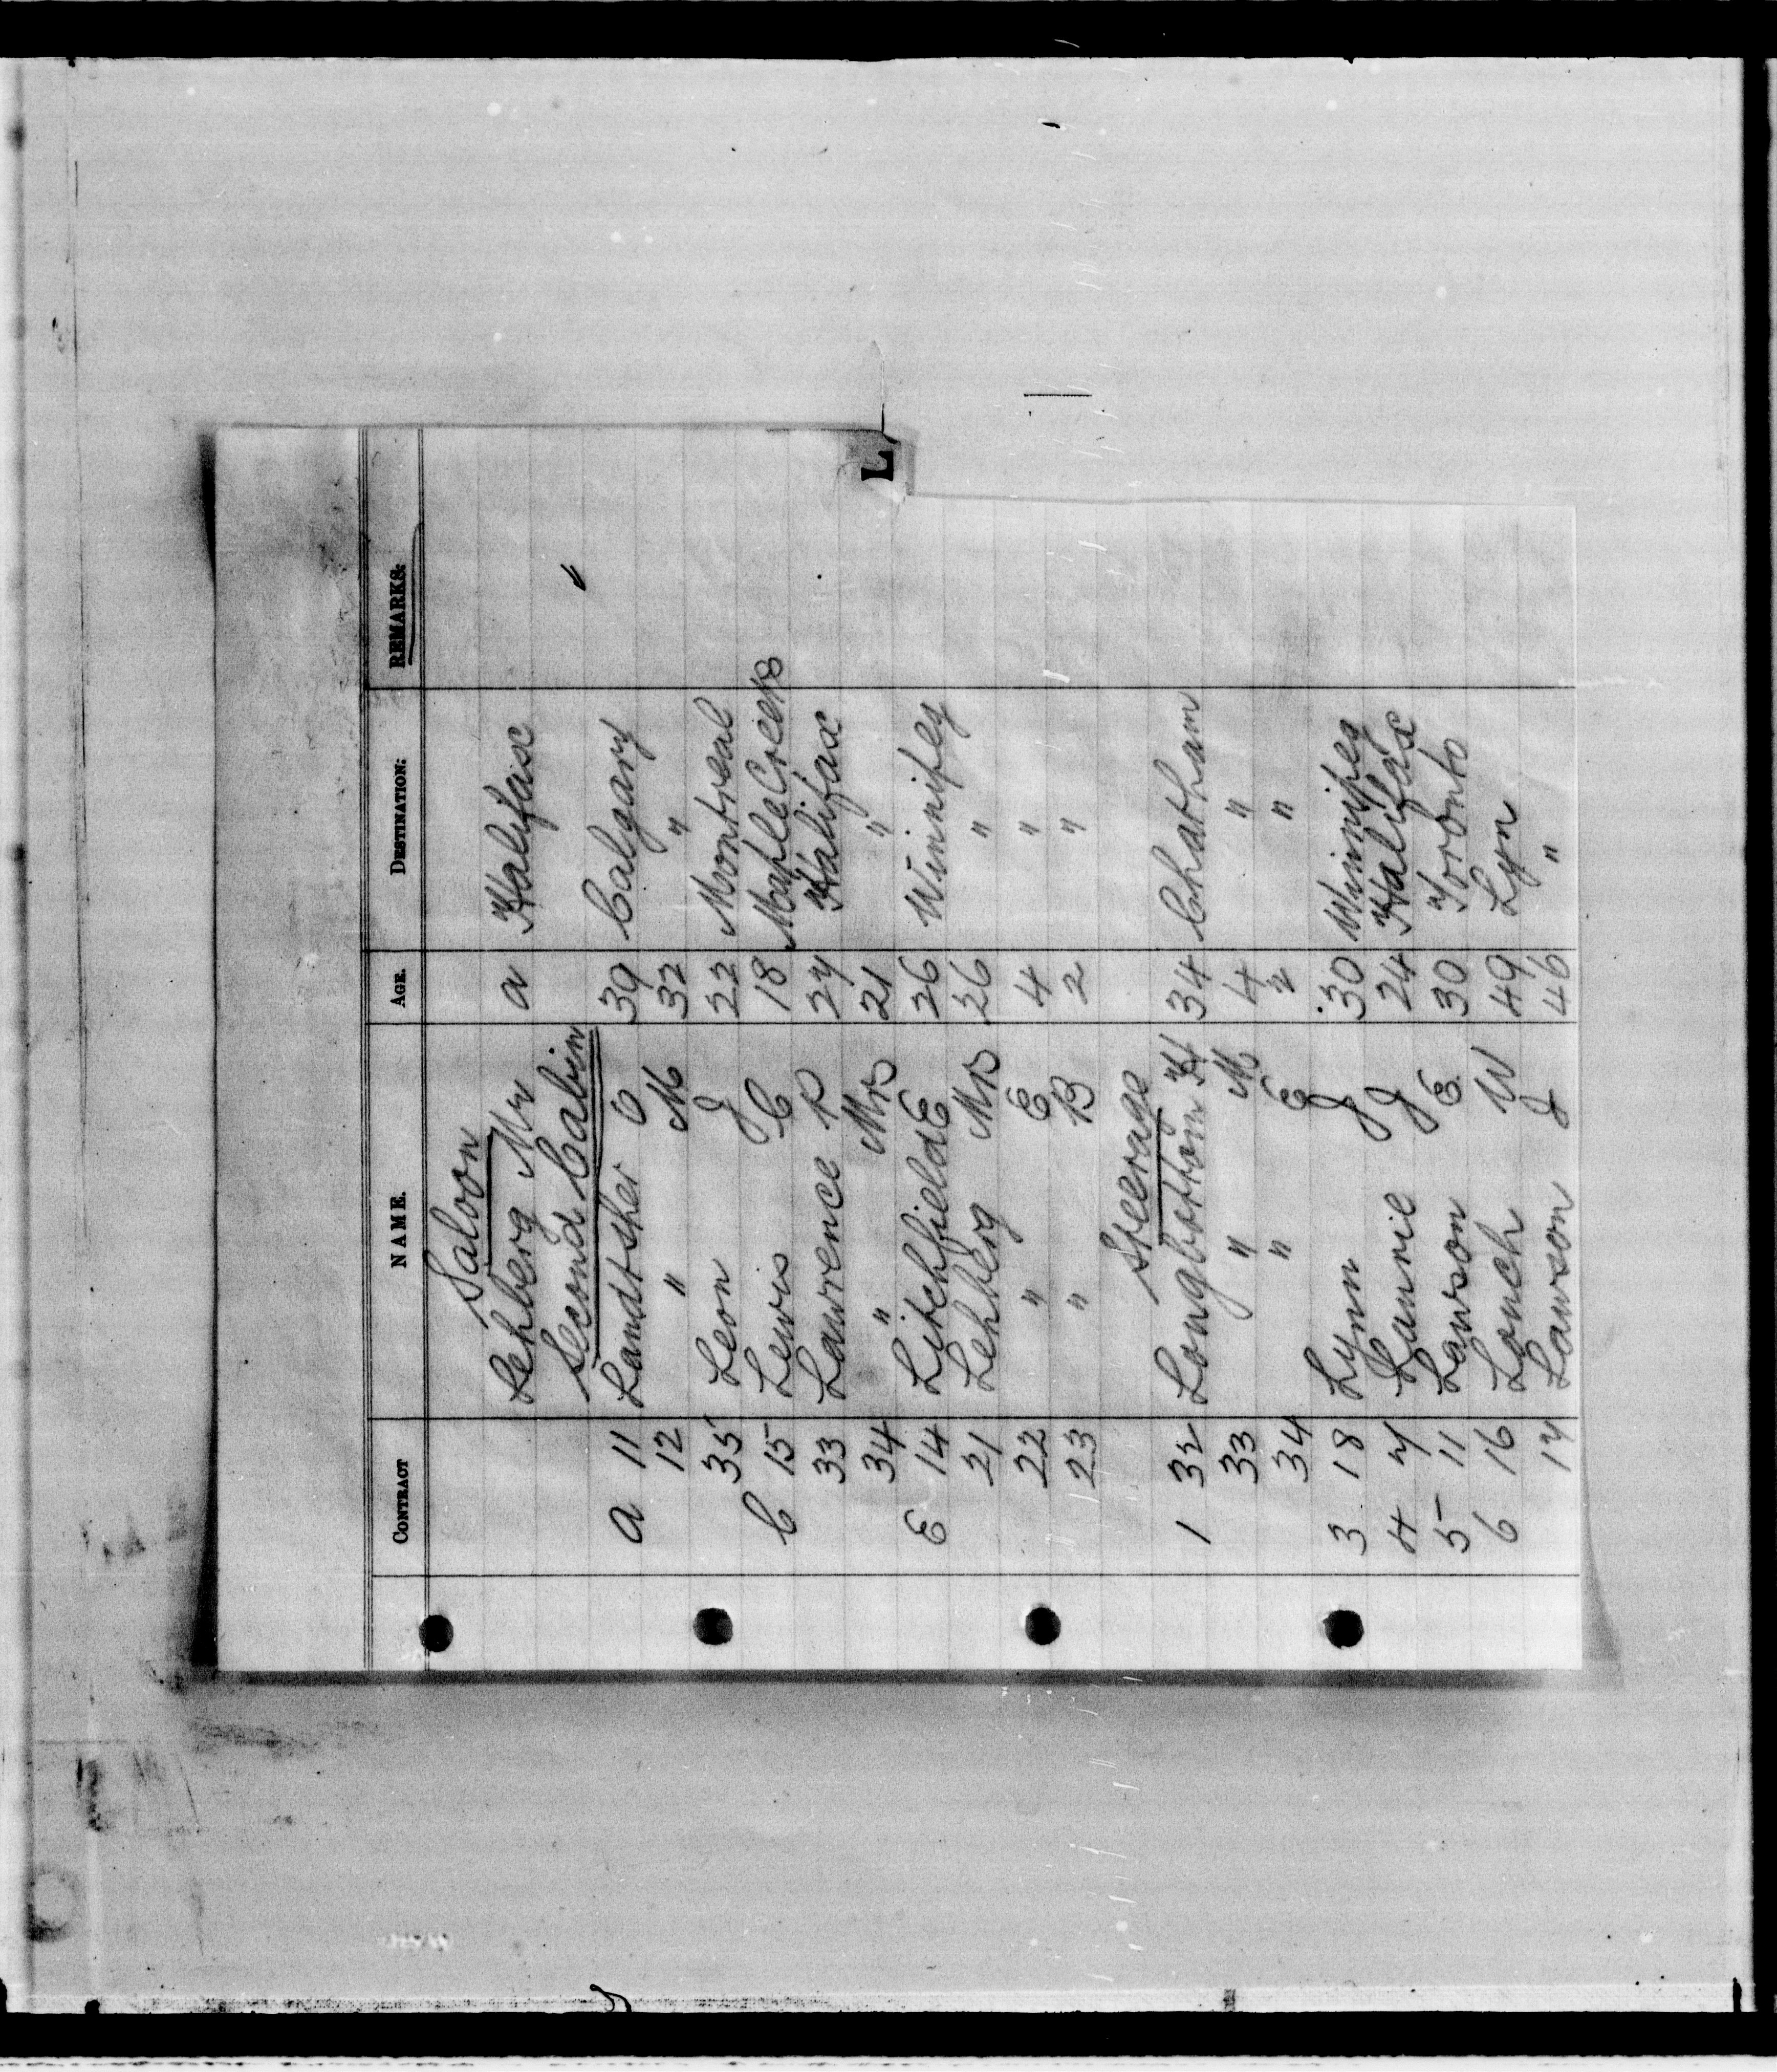 CONTRACT NAME. AGE. DESTINATION: REMARKS:
Saloon
Lehberg Mr a Halifax
Second Cabin "
a 11 Landtsher O 39 Calgary
12 " M 32 "
35 Leon J 22 Montreal
C 15 Lewis C 18 Maple Creek
33 Lawrence R 27 Halifax
34 " Mrs 21 "
E 14 Litchfield E 26 Winnipeg
21 Lehberg Mrs 26 "
22 " E 4 "
23 " B 2 "
Steerage
1 32 Longbottom H 34 Chatham
33 " M 4 "
34 " E 2 "
3 18 Lynn J 30 Winnipeg
4 7 J 24 Halifax
5 11 Lawson E 30 Toronto
6 16 Lonch W 49 Lyn
17 Lawson J 46 "
L